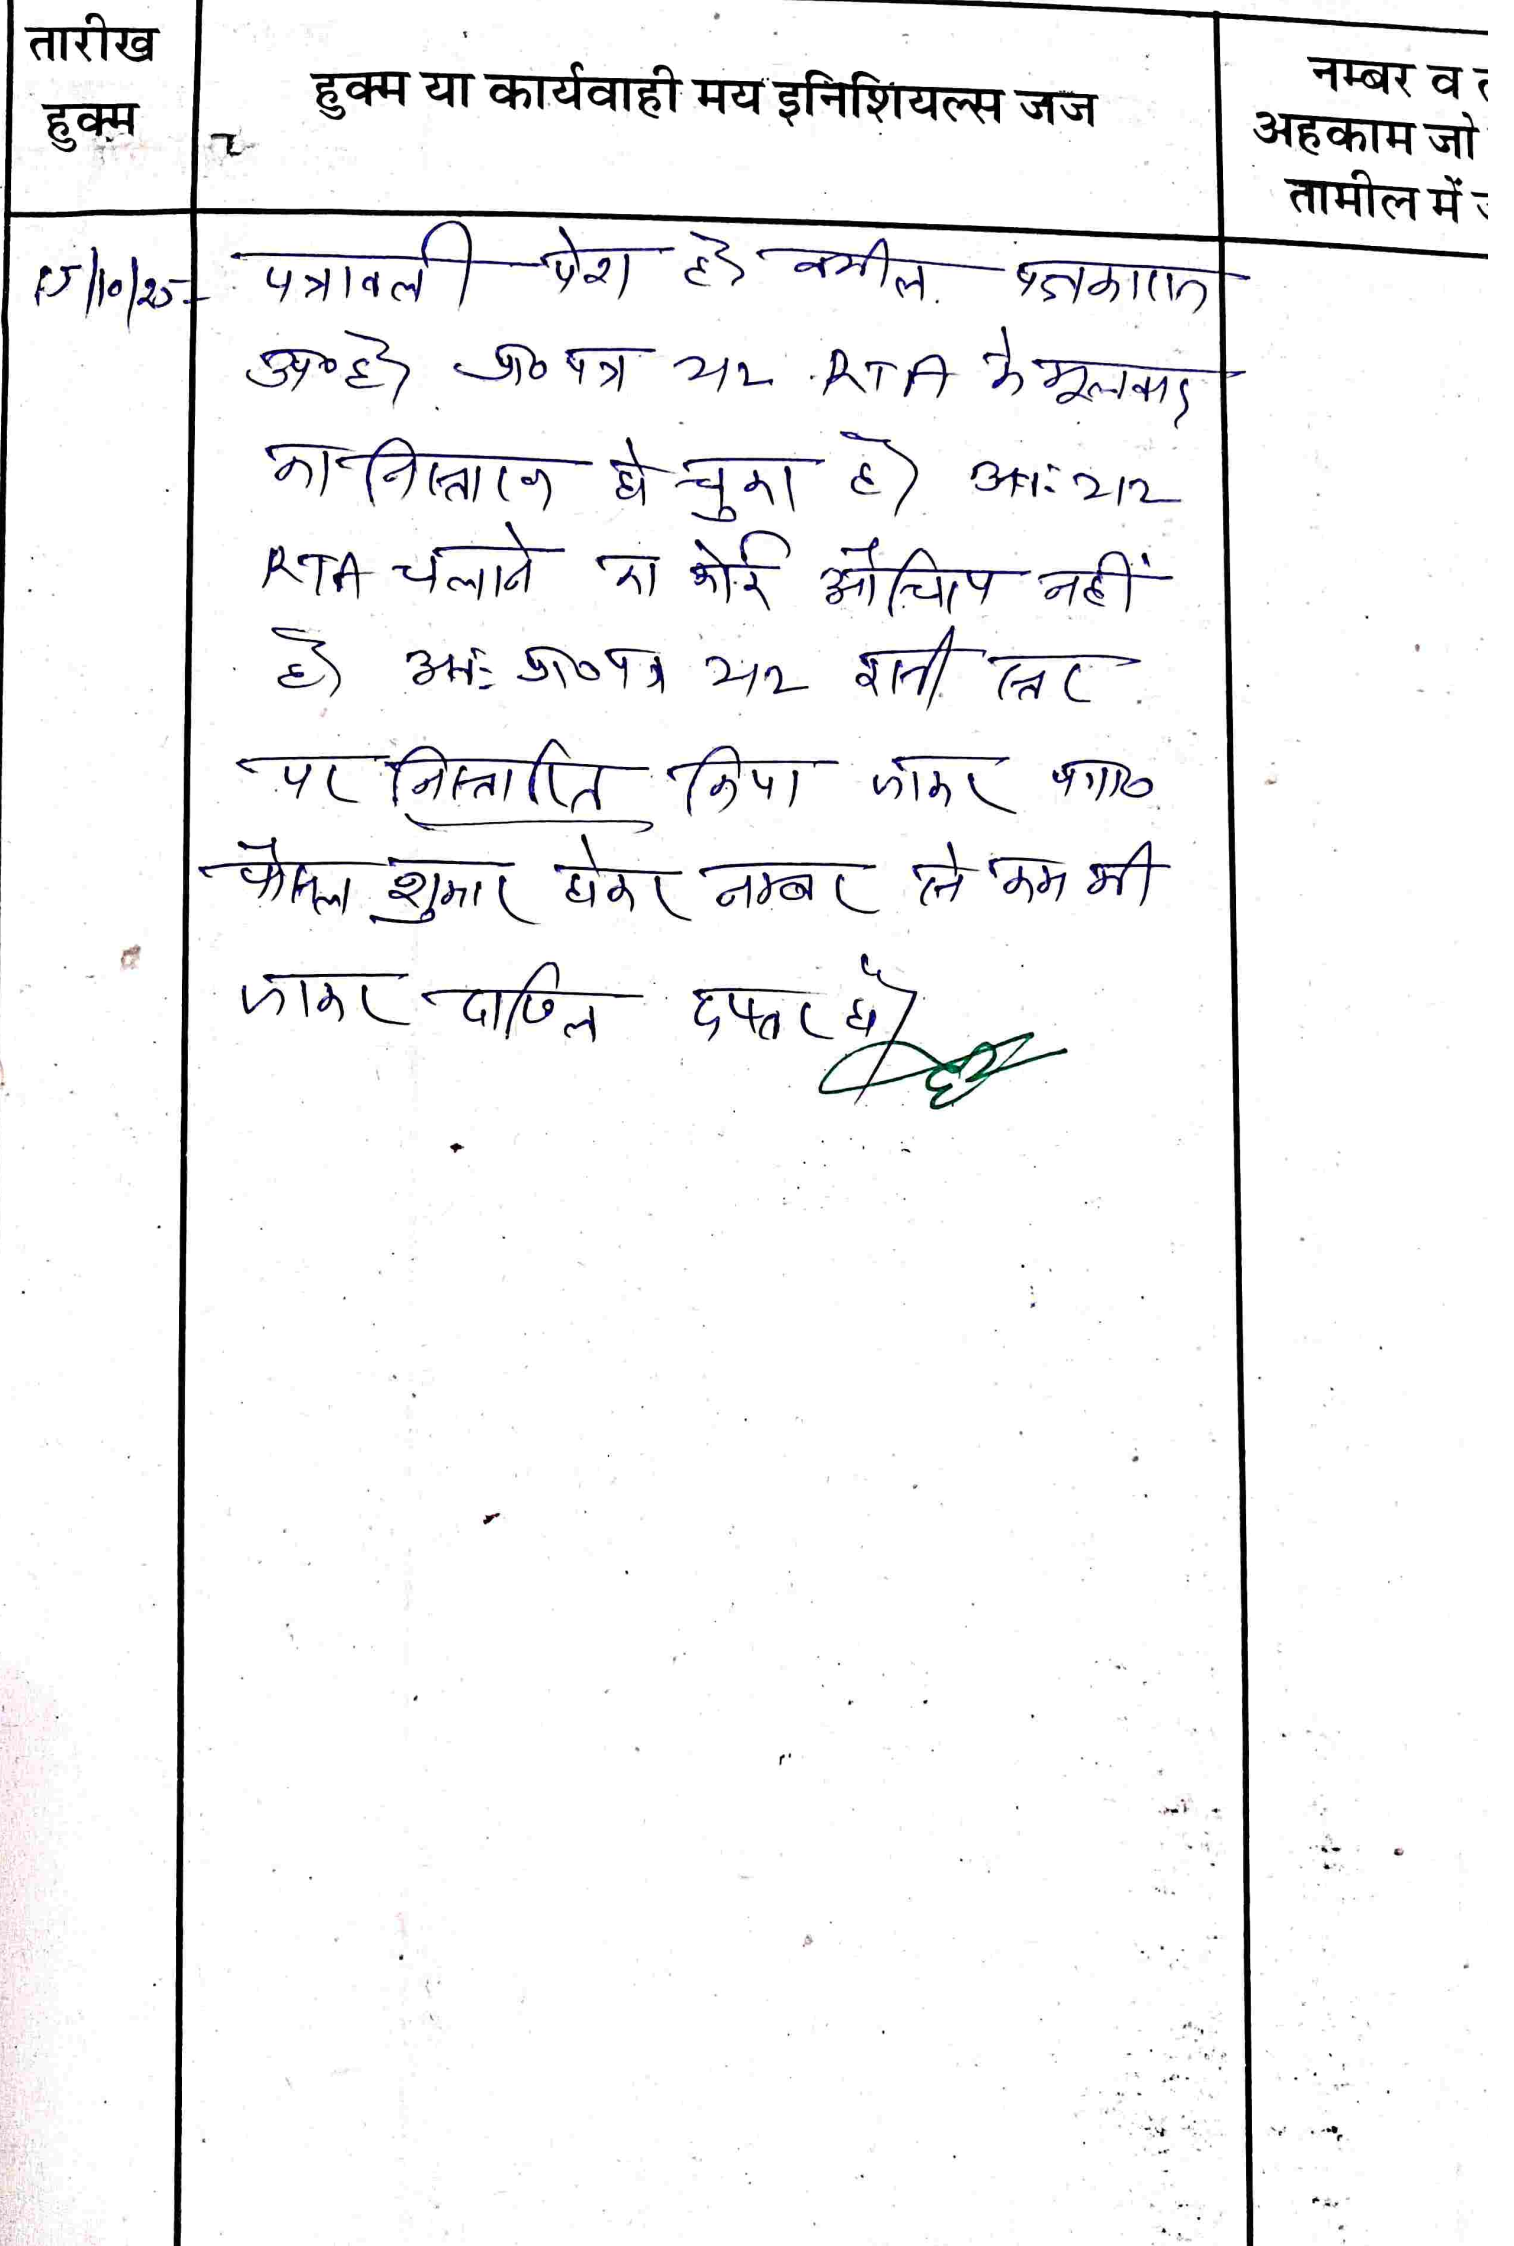 तारीख
हुक्म
हुक्म या कार्यवाही मय इनिशियल्स जज
नम्बर व त
अहकाम जो
तामील में ज
15/10/25
पत्रावली पेश है। वकील पक्षकारान
उप० है। प्रा० पत्र 212 RTA के मूलवाद
का निस्तारण हो चुका है। अतः 212
RTA चलाने का कोई औचित्य नहीं
है। अतः प्रा० पत्र 212 इसी स्तर
पर निस्तारित किया जाकर
फैसल शुमार होकर नम्बर से कम की
जाकर दाखिल दफ्तर हो।